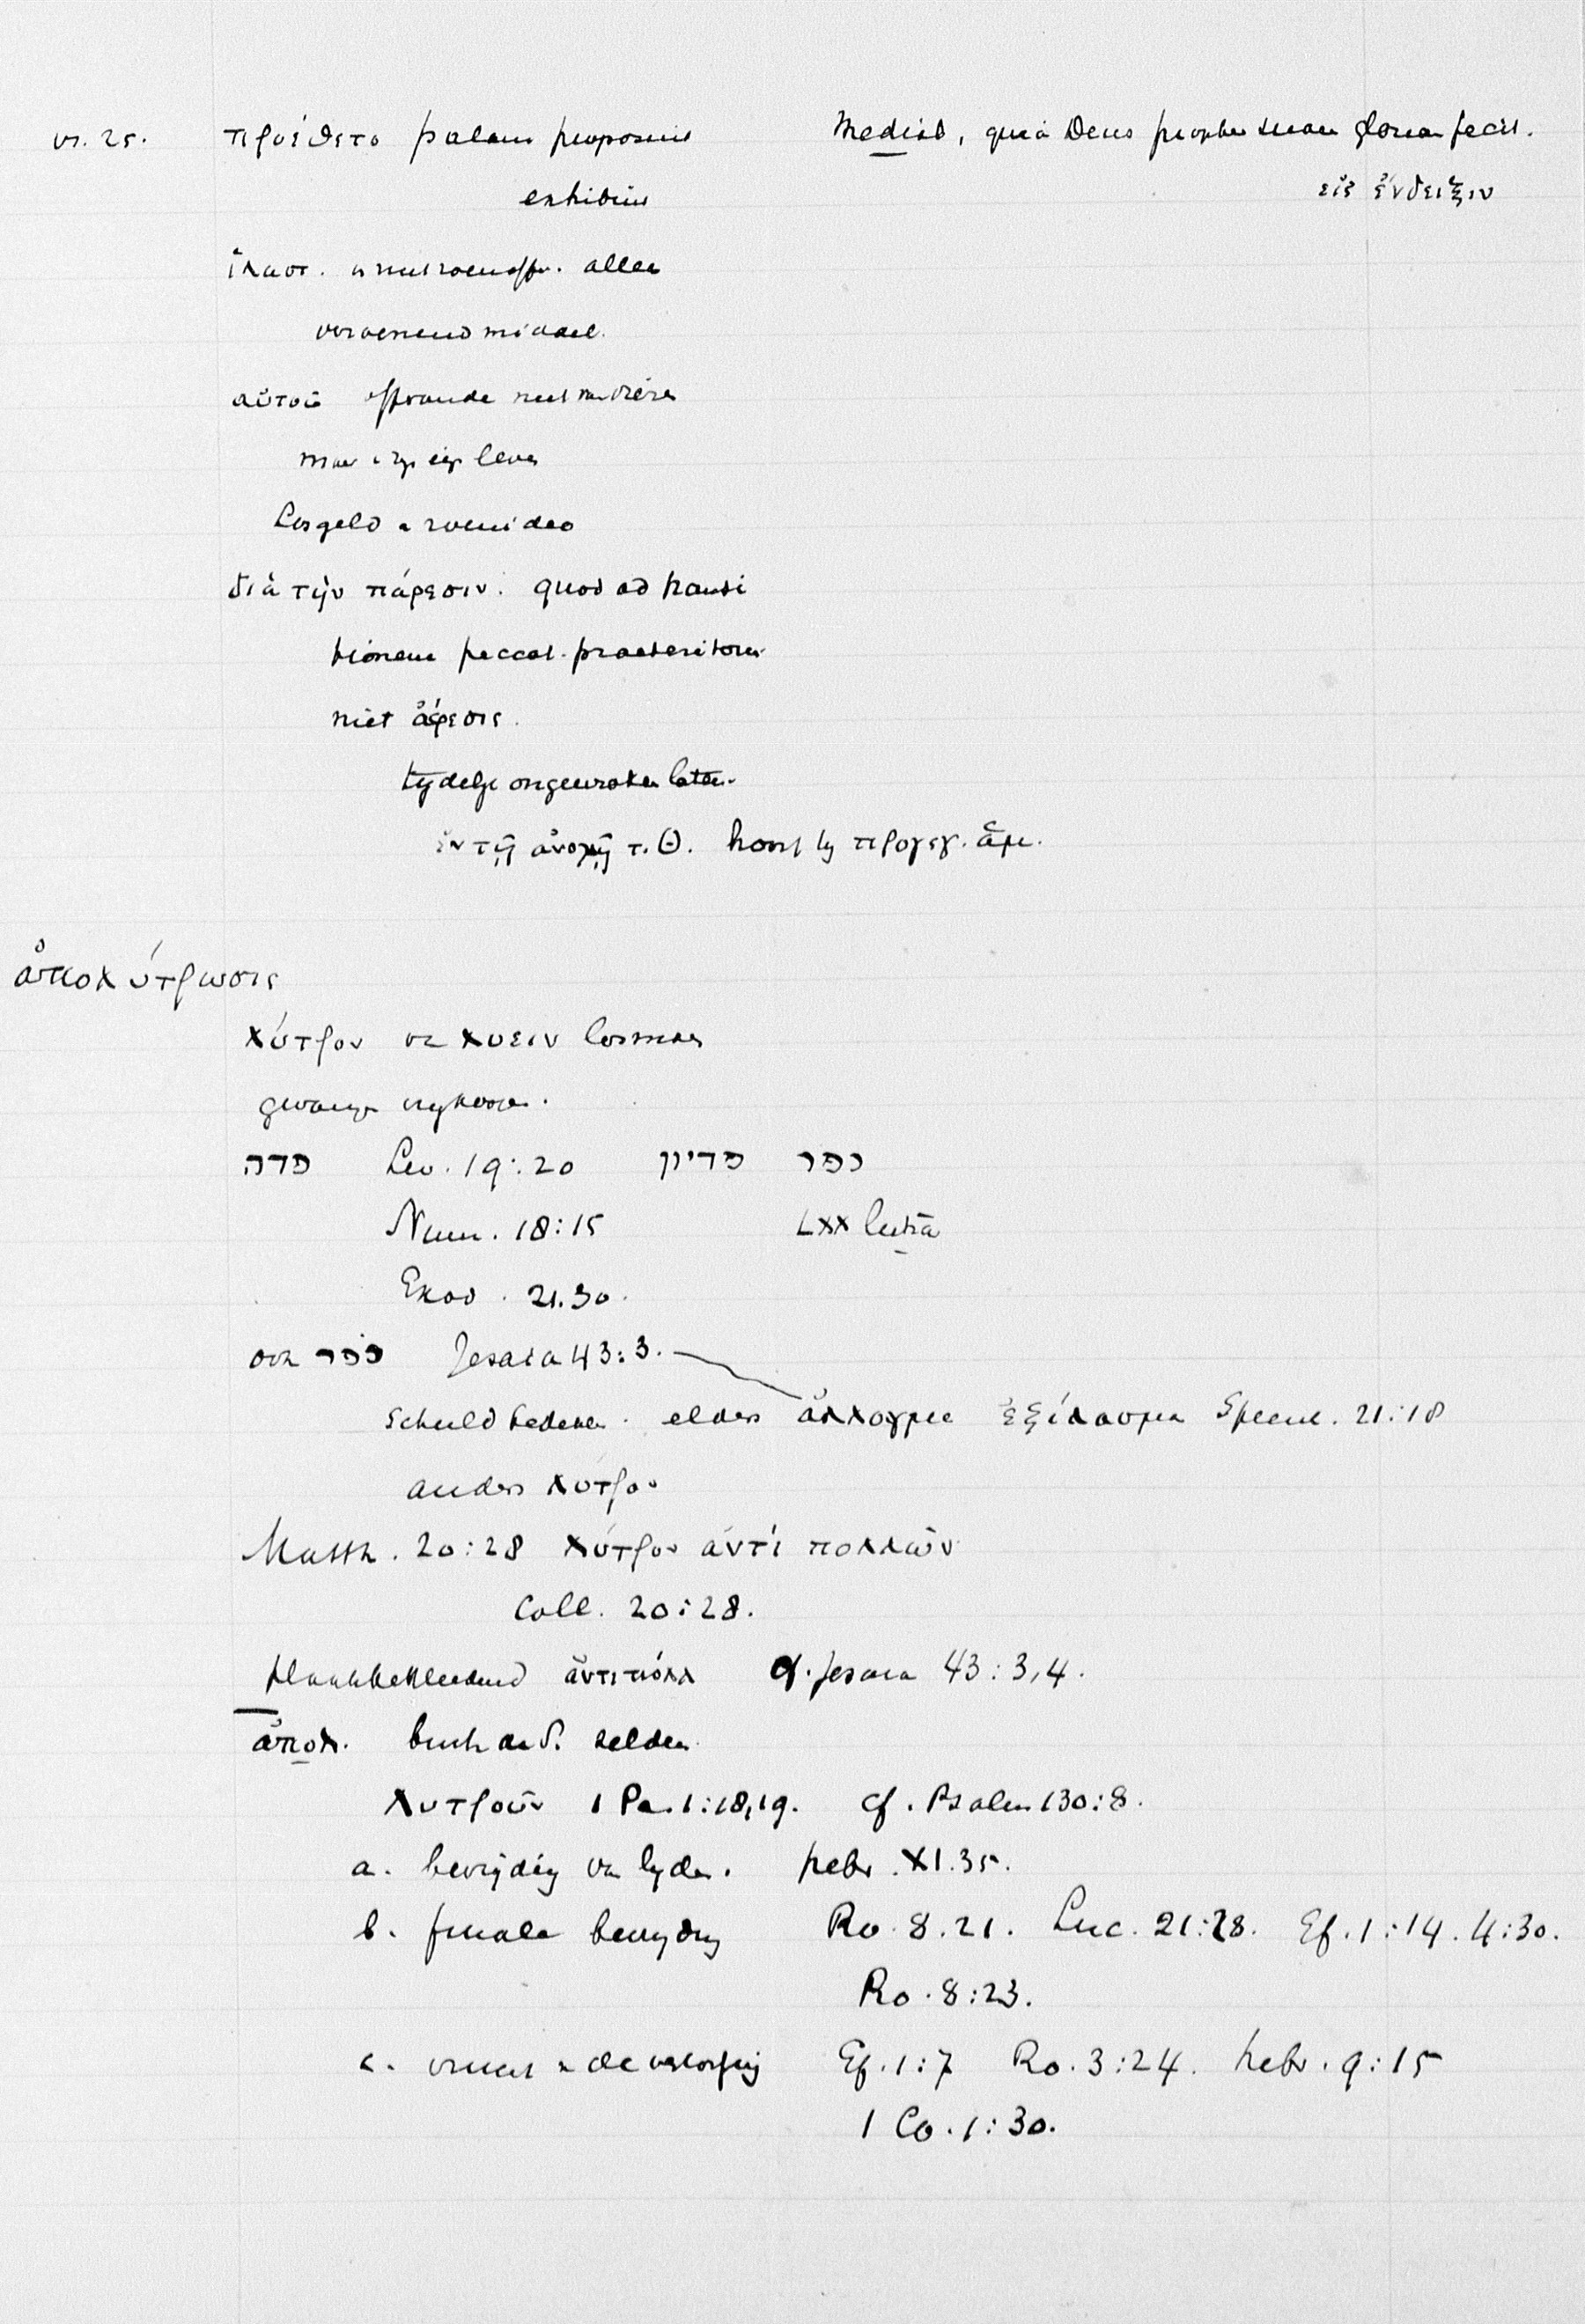 vs. 25. προέθετο palam proposuit Mediat, quia Deus propter suam gloriam fecit.
exhibuit εἰς ἔνδειξιν
ἱλαστ. is niet zoenoffer. alleen
verzoenend middel.
αὐτοῦ offerande niet van dieren
maar eigen leven
Losgeld
διὰ τὴν πάρεσιν. quod ad transi
tionem peccat. praeteritorum
niet ἄφεσις.
tijdelijk ongewroken laten.
ἐν τῇ ἀνοχῇ τ. Θ. hoort bij προγεγ. ἁμ.
ἀπολύτρωσις
λύτρον va λυειν losmaken
פדה Lev. 19:20 פדיון כפר
Num. 18:15 LXX lutra
Exod. 21.30.
ook כֹּפֶר Jesaia 43:3.
Schuld bedekken. elders ἄλλαγμα ἐξίλασμα Spreuk. 21:18
anders λύτρον
Matth. 20:28 λύτρον ἀντὶ πολλῶν
Coll. 20:28.
plaatsbekleedend ἀντι πολλ cf. Jesaia 43:3,4.
ἀπολ. buiten de S. zelden.
λυτροῦν 1 Pe. 1:18,19. cf. Psalm 130:8.
a. bevrijding van lijden. hebr. XI.35.
b. finale bevrijding Ro. 8.21. Luc. 21:28. Ef. 1:14. 4:30.
Ro. 8:23.
c. vrucht de verlossing Ef. 1:7 Ro. 3:24. hebr. 9:15
1 Co. 1:30.